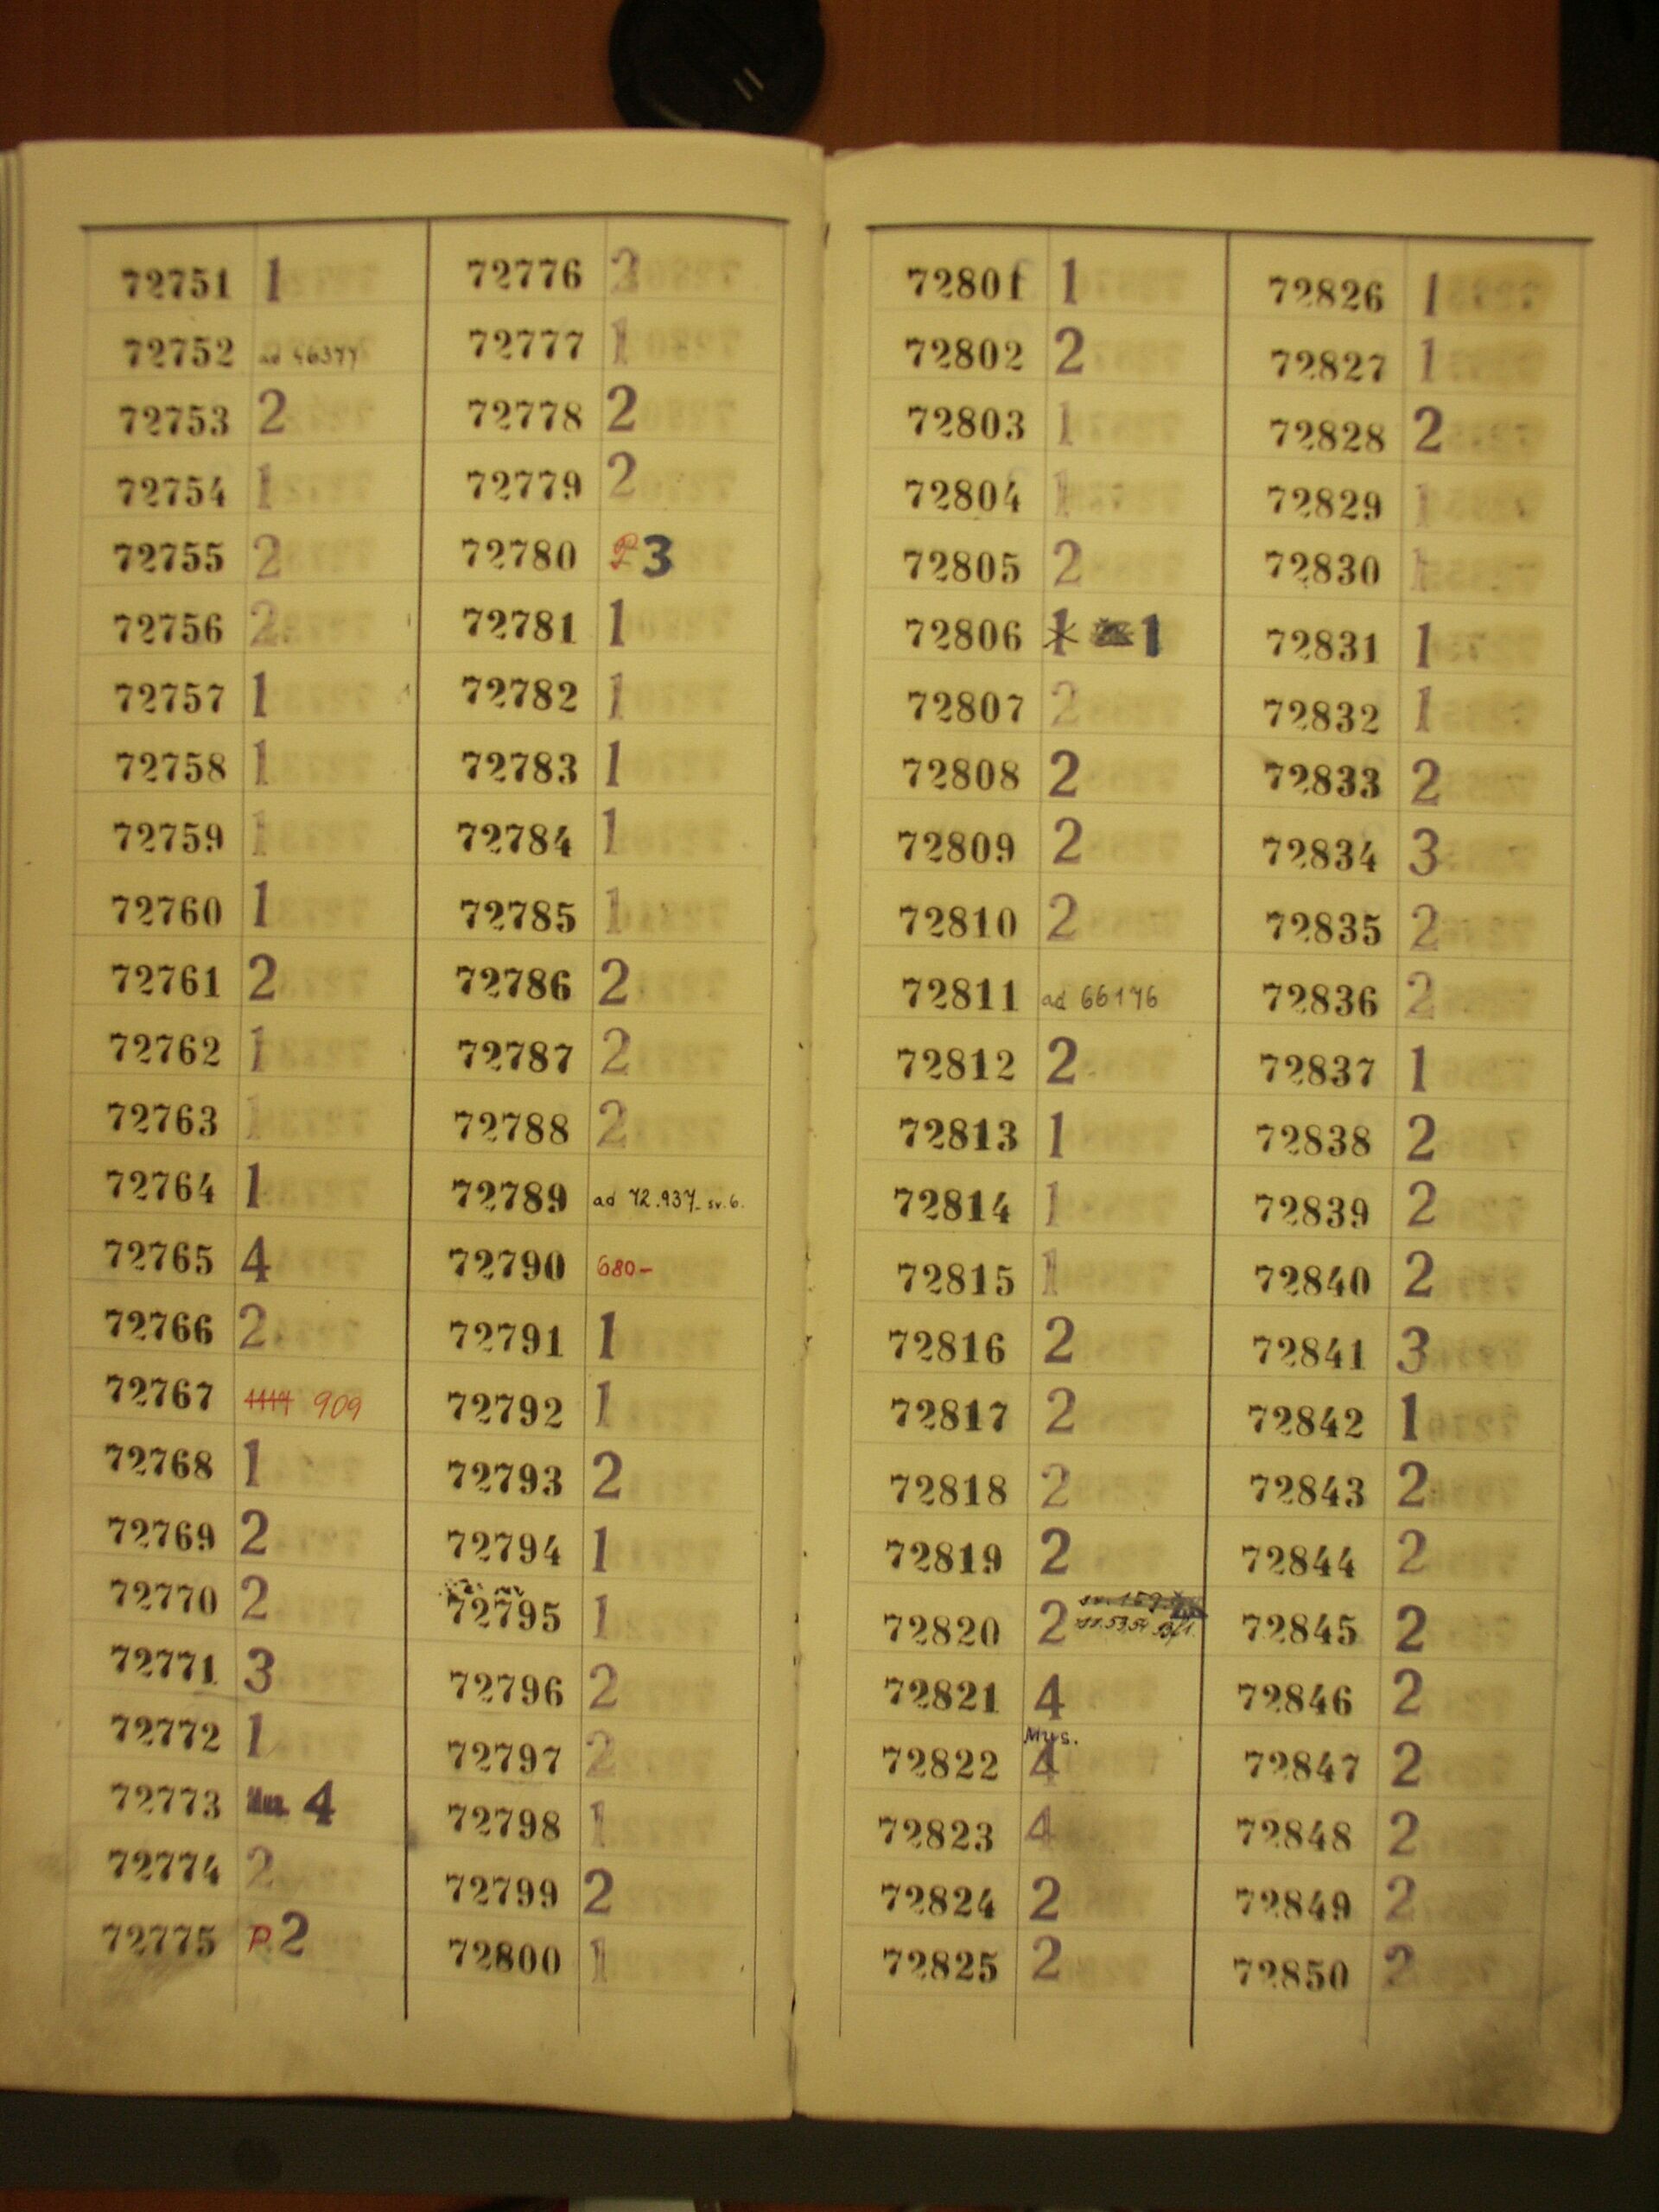 72751 1
72752 ad 46377
72753 2
72754 1
72755 2
72756 2
72757 1
72758 1
72759 1
72760 1
72761 2
72762 1
72763 1
72764 1
72765 4
72766 2
72767 909
72768 1
72769 2
72770 2
72771 3
72772 1
72773 Mus. 4
72774 2
72775 P 2
72776 2
72777 1
72778 2
72779 2
72780 P 3
72781 1
72782 1
72783 1
72784 1
72785 1
72786 2
72787 2
72788 2
72789 ad 72.937 - sv. 6.
72790 680-
72791 1
72792 1
72793 2
72794 1
72795 1
72796 2
72797 2
72798 1
72799 2
72800 1
72801 1
72802 2
72803 1
72804 1
72805 2
72806 1 1
72807 2
72808 2
72809 2
72810 2
72811 ad 66176
72812 2
72813 1
72814 1
72815 1
72816 2
72817 2
72818 2
72819 2
72820 2
72821 4
Mus.
72822 4
72823 4
72824 2
72825 2
72826 1
72827 1
72828 2
72829 1
72830 1
72831 1
72832 1
72833 2
72834 3
72835 2
72836 2
72837 1
72838 2
72839 2
72840 2
72841 3
72842 1
72843 2
72844 2
72845 2
72846 2
72847 2
72848 2
72849 2
72850 2